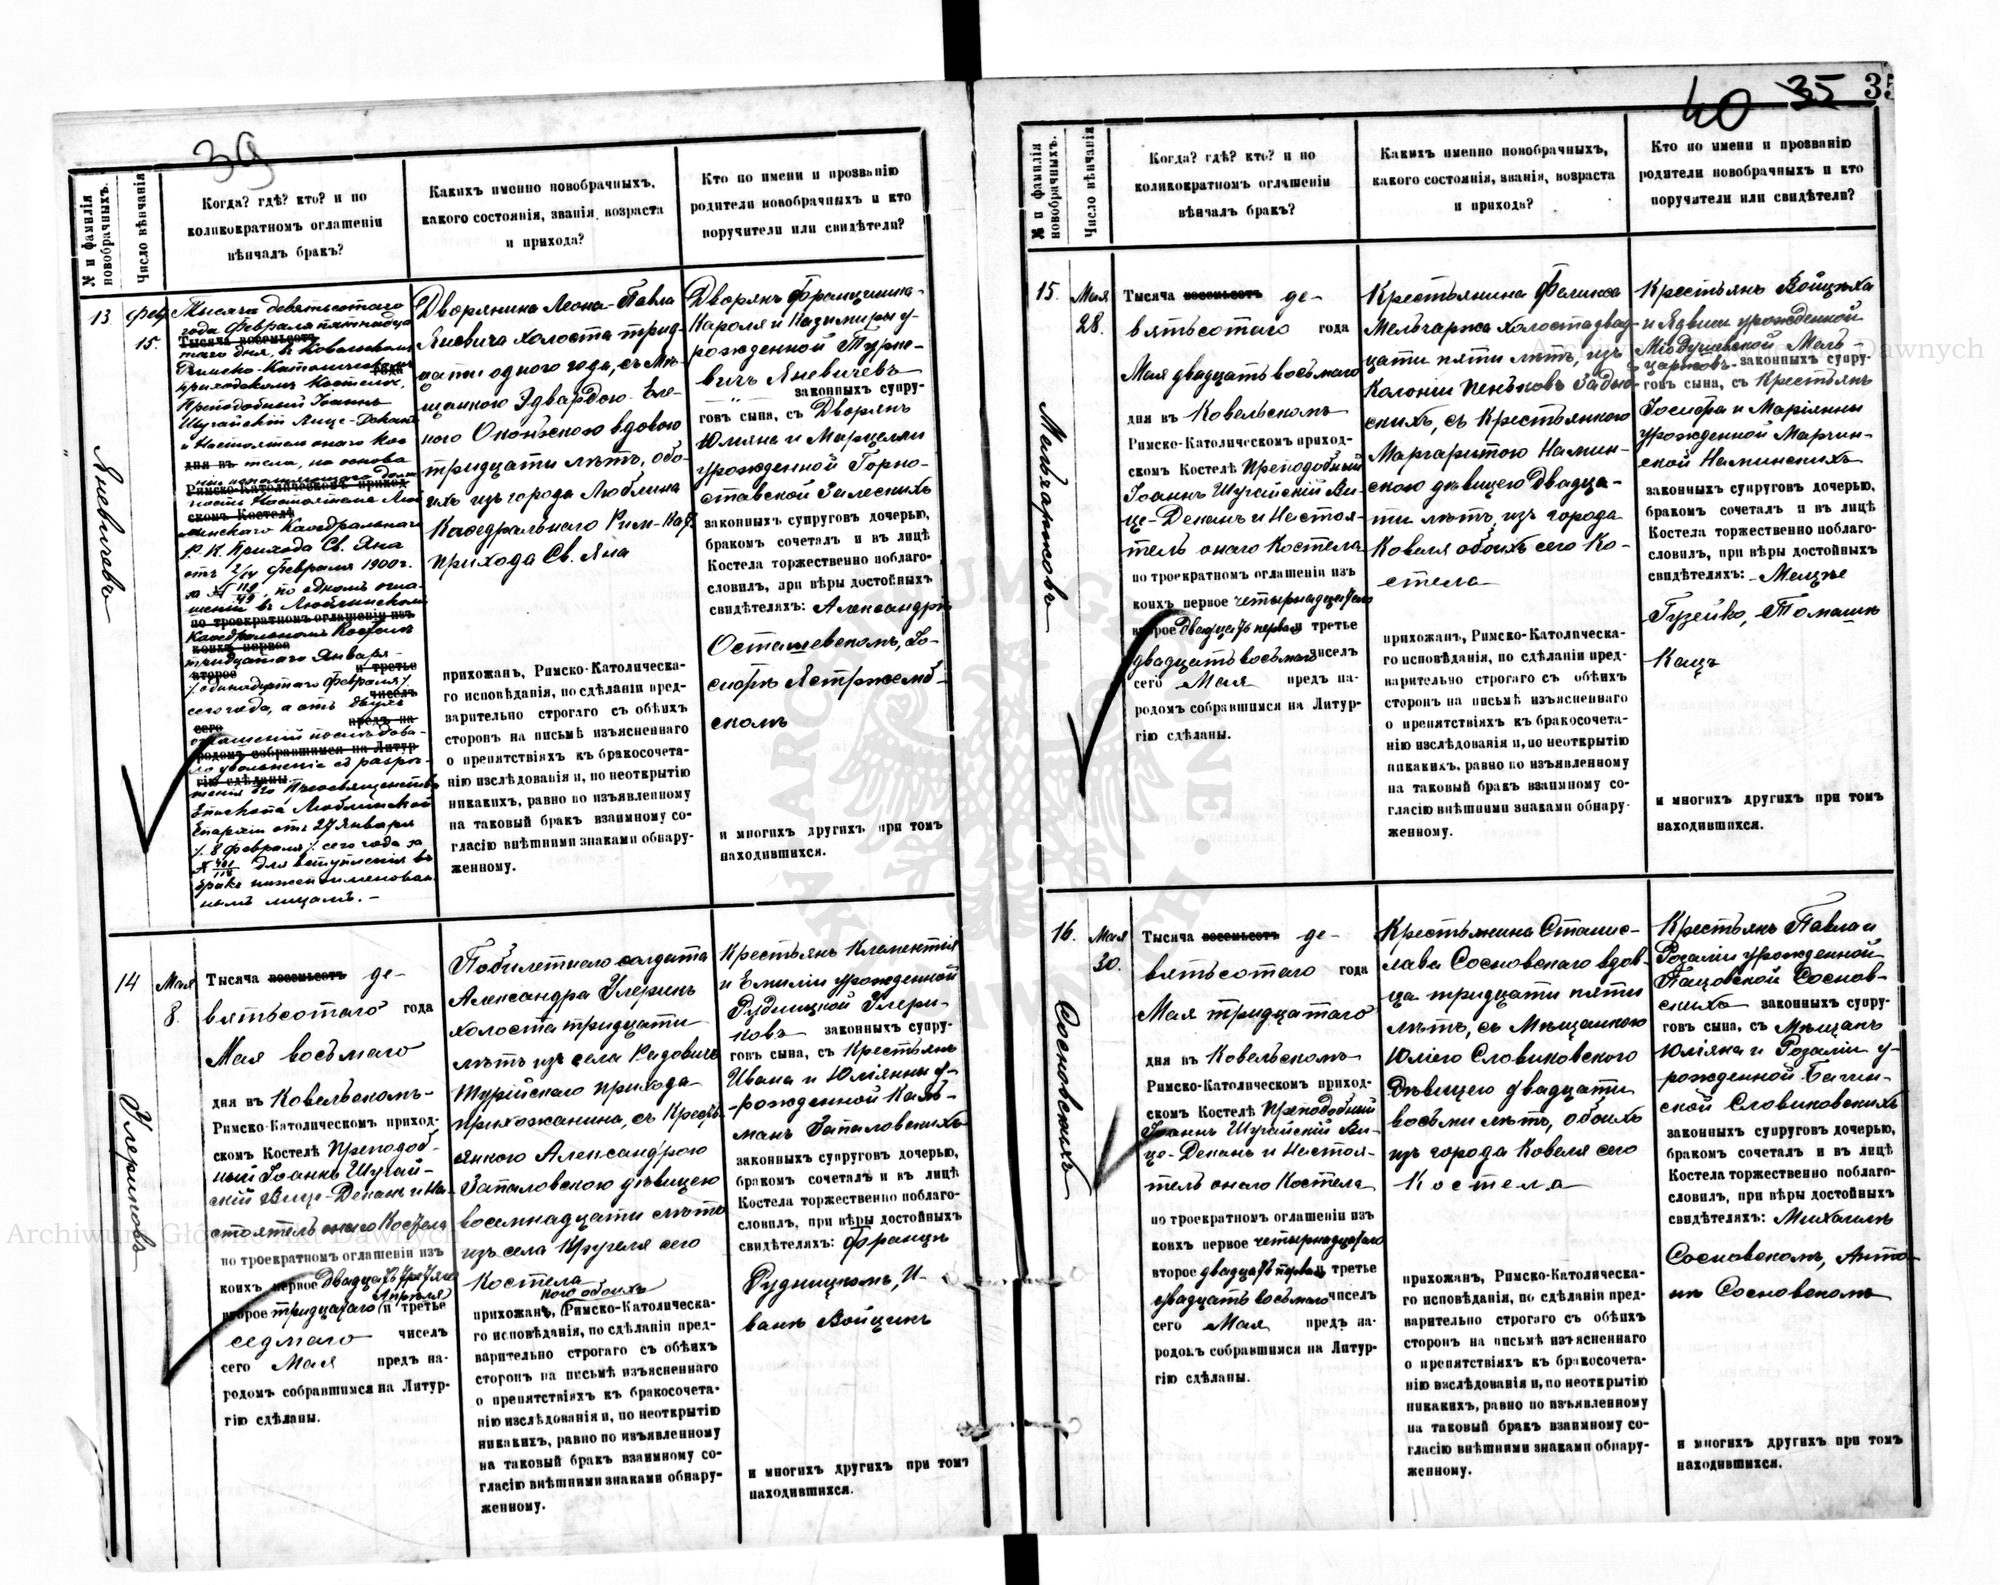 39
№ и фамилія новобрачныхъ.
Число вѣнчанія
Когда? гдѣ? кто? и по
коликократномъ оглашеніи
вѣнчалъ бракъ?
Какихъ именно новобрачныхъ,
какого состоянія, званія, возраста
и прихода?
Кто по имени и прозванію
родители новобрачныхъ и кто
поручители или свидѣтели?
13
Фев.
15.
Яневичавъ
Тысяча девятьсотаго
года Февраля пятнадца
Тысяча восемьсотъ
таго дня, въ Ковельскомъ
Римско-Католическомъ
года
приходскомъ Костелѣ,
Преподобный Іоаннъ
Шугайскій Вице-Деканъ
и Настоятель онаго Кос
дня въ тела, на основа
Римско-Католическомъ приход
скомъ Костелѣ
линскаго Кафедральнаго
Р. К. Прихода Св. Яна
отъ 2/14 Февраля 1900 г.
за № 119/49, по одномъ огла-
шеніи въ Люблинскомъ
по троекратномъ оглашеніи изъ
Кафедральномъ Костелѣ
коихъ первое
тридцатаго Января
и третье
второе
/одинадцатаго Февраля/
чиселъ
сего года, а отъ двухъ
сего
предъ на-
оглашеній послѣдова-
родомъ собравшимся на Литур-
гію сдѣланы.
Епископа Люблинской
Епархіи отъ 27 Января
/8 Февраля/ сего года за
для вступленія въ
бракъ нижепоименован
нымъ лицамъ. –
Дворянина Леона-Павла
Яневича холоста трид-
цати одного года, съ Мѣ-
щанкою Эдвардою-Еле-
ною Оконьскою вдовою
тридцати лѣтъ, обо-
ихъ изъ города Люблина
Кафедральнаго Рим-Каѳ.
прихода Св. Яна
прихожанъ, Римско-Католическа-
го исповѣданія, по сдѣланіи пред-
варительно строгаго съ обѣихъ
сторонъ на письмѣ изъясненнаго
о препятствіяхъ къ бракосочета-
нію изслѣдованія и, по неоткрытію
никакихъ, равно по изъявленному
на таковый бракъ взаимному со-
гласію внѣшними знаками обнару-
женному.
Дворянъ Францишка-
Кароля и Казимиры у-
рожденной Турке-
вичъ Яневичевъ
законныхъ супру-
говъ сына, съ Дворянъ
Юліяна и Марцелли
урожденной Горно-
ставской Залескихъ
законныхъ супруговъ дочерью,
бракомъ сочеталъ и въ лицѣ
Костела торжественно поблаго-
словилъ, при вѣры достойныхъ
свидѣтеляхъ: Александрѣ
Осташевскомъ, Іо-
сифѣ Ястржемб-
скомъ
и многихъ другихъ при томъ
находившихся.
14
Мая
8.
Улериковъ
Тысяча восемьсотъ де-
вятьсотаго года
Мая восьмаго
дня въ Ковельскомъ
Римско-Католическомъ приход-
скомъ Костелѣ Преподоб-
ный Іоаннъ Шугай-
скій Вице-Деканъ и На-
стоятель онаго Костела
по троекратномъ оглашеніи изъ
коихъ первое двадцать третяго
Апрѣля
второе тридцатаго и третье
седмаго чиселъ
сего Мая предъ на-
родомъ собравшимся на Литур-
гію сдѣланы.
Побилетнаго солдата
Александра Улерикъ
холоста тридцати
лѣтъ изъ села Радовичъ
Турійскаго прихода
прихожанина, съ Кресть-
янкою Александрою
Запаловскою дѣвицею
восемнадцати лѣтъ
изъ села Цругеля сего
Костела
прихожанъ, Римско-Католическа-
го исповѣданія, по сдѣланіи пред-
варительно строгаго съ обѣихъ
сторонъ на письмѣ изъясненнаго
о препятствіяхъ къ бракосочета-
нію изслѣдованія и, по неоткрытію
никакихъ, равно по изъявленному
на таковый бракъ взаимному со-
гласію внѣшними знаками обнару-
женному.
Крестьянъ Клементія
и Емиліи урожденной
Рудницкой Улери-
ковъ законныхъ супру-
говъ сына, съ Крестьянъ
Ивана и Юліянны у-
рожденной Каль-
манъ Запаловскихъ
законныхъ супруговъ дочерью,
бракомъ сочеталъ и въ лицѣ
Костела торжественно поблаго-
словилъ, при вѣры достойныхъ
свидѣтеляхъ: Францѣ
Рудницкомъ, И-
ванѣ Войцикъ
и многихъ другихъ при томъ
находившихся.
40 35 35
№ и фамилія новобрачныхъ.
Число вѣнчанія
Когда? гдѣ? кто? и по
коликократномъ оглашеніи
вѣнчалъ бракъ?
Какихъ именно новобрачныхъ,
какого состоянія, званія, возраста
и прихода?
Кто по имени и прозванію
родители новобрачныхъ и кто
поручители или свидѣтели?
15.
Мая
28.
Мельчарковъ
Тысяча восемьсотъ де-
вятьсотаго года
Мая двадцать восьмаго
дня въ Ковельскомъ
Римско-Католическомъ приход-
скомъ Костелѣ Преподобный
Іоаннъ Шугайскій Ви-
це-Деканъ и Настоя-
тель онаго Костела
по троекратномъ оглашеніи изъ
коихъ первое четырнадцатаго
второе двадцать перваго и третье
двадцать восьмаго чиселъ
сего Мая предъ на-
родомъ собравшимся на Литур-
гію сдѣланы.
Крестьянина Феликса
Мельчарка холоста двад-
цати пяти лѣтъ, изъ
Колоніи Пеньковъ Задыб-
скихъ, съ Крестьянкою
Маргаритою Камин-
скою дѣвицею двадца-
ти лѣтъ, изъ города
Ковеля обоихъ сего Ко-
стела
прихожанъ, Римско-Католическа-
го исповѣданія, по сдѣланіи пред-
варительно строгаго съ обѣихъ
сторонъ на письмѣ изъясненнаго
о препятствіяхъ къ бракосочета-
нію изслѣдованія и, по неоткрытію
никакихъ, равно по изъявленному
на таковый бракъ взаимному со-
гласію внѣшними знаками обнару-
женному.
Крестьянъ Войцѣха
и Ядвиги урожденной
Міодушевской Мель-
чарковъ законныхъ супру-
говъ сына, съ Крестьянъ
Іосифа и Маріянны
урожденной Марчин-
ской Каминскихъ
законныхъ супруговъ дочерью,
бракомъ сочеталъ и въ лицѣ
Костела торжественно поблаго-
словилъ, при вѣры достойныхъ
свидѣтеляхъ:
Гузейко, Томашѣ
Кацъ
и многихъ другихъ при томъ
находившихся.
16.
Мая
30.
Сосновскихъ
Тысяча восемьсотъ де-
вятьсотаго года
Мая тридцатаго
дня въ Ковельскомъ
Римско-Католическомъ приход-
скомъ Костелѣ Преподобный
Іоаннъ Шугайскій Ви-
це-Деканъ и Настоя-
тель онаго Костела
по троекратномъ оглашеніи изъ
коихъ первое четырнадцатаго
второе двадцать перваго и третье
двадцать восьмаго чиселъ
сего Мая предъ на-
родомъ собравшимся на Литур-
гію сдѣланы.
Крестьянина Станис-
лава Сосновскаго вдов-
ца тридцати пяти
лѣтъ, съ Мѣщанкою
Юліею Словиковскою
дѣвицею двадцати
восьми лѣтъ, обоихъ
изъ города Ковеля сего
Костела
прихожанъ, Римско-Католическа-
го исповѣданія, по сдѣланіи пред-
варительно строгаго съ обѣихъ
сторонъ на письмѣ изъясненнаго
о препятствіяхъ къ бракосочета-
нію изслѣдованія и, по неоткрытію
никакихъ, равно по изъявленному
на таковый бракъ взаимному со-
гласію внѣшними знаками обнару-
женному.
Крестьянъ Павла и
Розаліи урожденной
Пацовской Соснов-
скихъ законныхъ супру-
говъ сына, съ Мѣщанъ
Юліяна и Розаліи у-
рожденной Бачин-
ской Словиковскихъ
законныхъ супруговъ дочерью,
бракомъ сочеталъ и въ лицѣ
Костела торжественно поблаго-
словилъ, при вѣры достойныхъ
свидѣтеляхъ: Михаилѣ
Сосновскомъ, Анто-
нѣ Сосновскомъ
и многихъ другихъ при томъ
находившихся.
Archiwum Główne Akt Dawnych